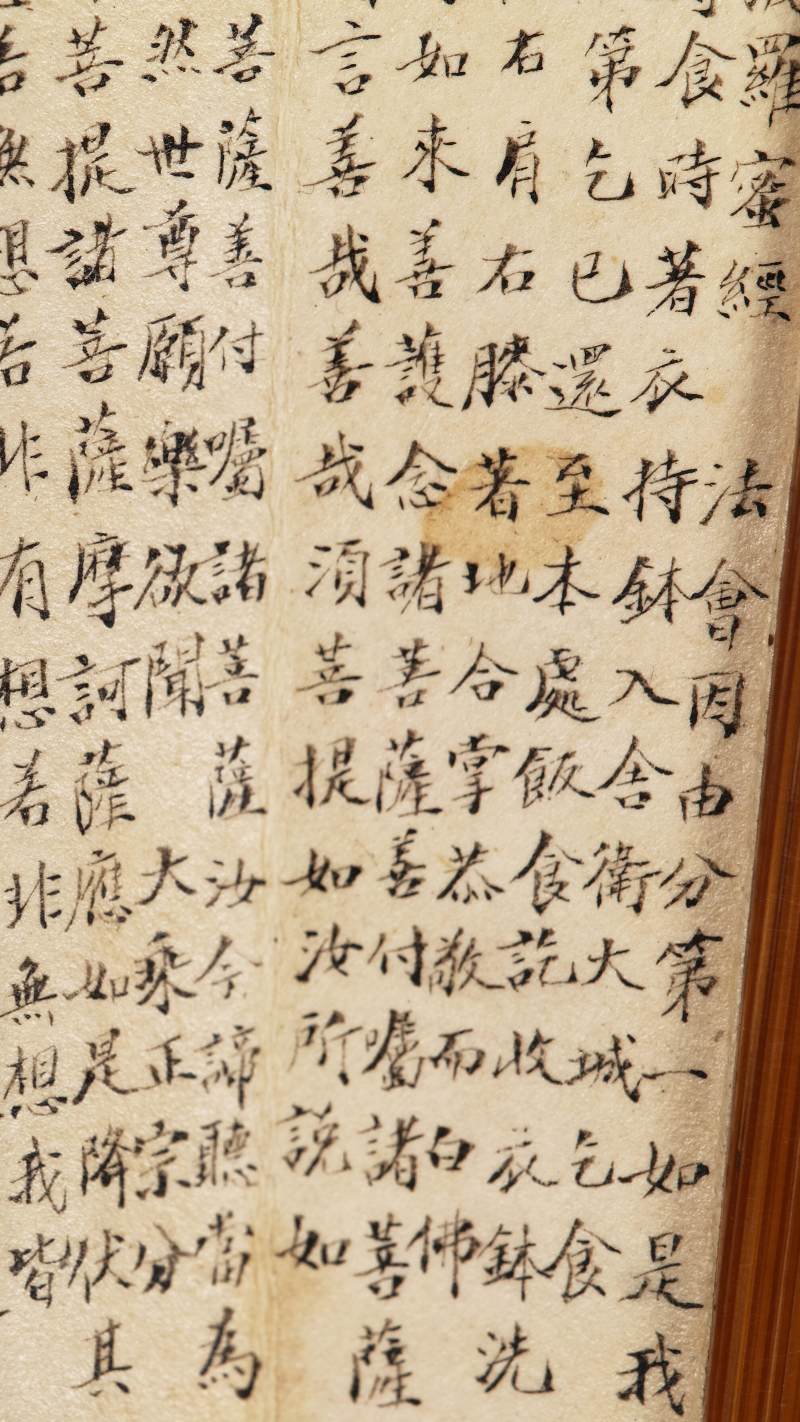 羅蜜經 法會因由分第一如是我
食時著衣持鉢入舍衛大城乞食
第乞已還至本處飯食訖收衣鉢洗
右肩右膝著地合掌恭敬而白佛
如來善護念諸菩薩善付囑諸菩薩
言善哉善哉須菩提如汝所說如
菩薩善付囑諸菩薩汝今諦聽當為
然世尊願樂欲聞 大乘正宗分
菩提諸菩薩摩訶薩應如是降伏其
無想若非有想若非無想我皆